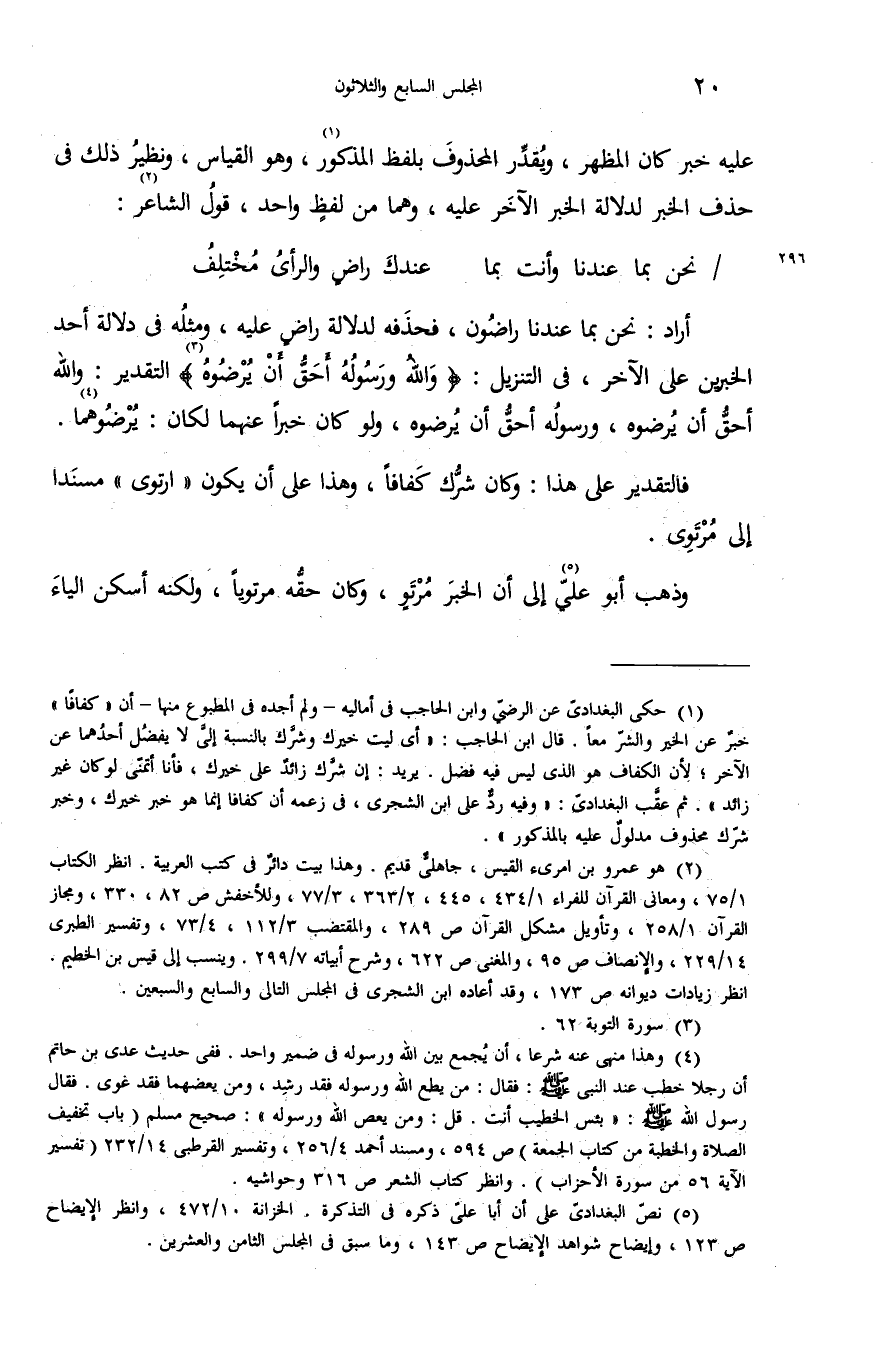 ٢٠ المجلس السابع والثلاثون
عليه خبر كان المظهر ، ويُقدِّر المحذوفَ بلفظ المذكور(١) ، وهو القياس ، ونظيرُ ذلك فى
حذف الخبر لدلالة الخبر الآخَر عليه ، وهما من لفظٍ واحد ، قولُ الشاعر(٢) :
٢٩٦ / نحن بما عندنا وأنت بما عندكَ راضٍ والرأىُ مُخْتلِفُ
أراد : نحن بما عندنا راضُون ، فحذَفه لدلالة راضٍ عليه ، ومثلُه فى دلالة أحد
الخبرين على الآخر ، فى التنزيل : ﴿ وَاللهُ ورَسُولُهُ أَحَقُّ أَنْ يُرْضُوهُ ﴾(٣) التقدير : والله
أحقُّ أن يُرضوه ، ورسولُه أحقُّ أن يُرضوه ، ولو كان خبراً عنهما لكان : يُرْضُوهما(٤) .
فالتقدير على هذا : وكان شرُّك كَفافاً ، وهذا على أن يكون « ارتوى » مسنَدا
إلى مُرْتَوِى .
وذهب أبو علىّ(٥) إلى أن الخبرَ مُرْتَوٍ ، وكان حقُّه مرتوياً ، ولكنه أسكن الياءَ
(١) حكى البغدادىّ عن الرضىّ وابن الحاجب فى أماليه – ولم أجده فى المطبوع منها – أن « كفافًا »
خبرٌ عن الخير والشرّ معاً . قال ابن الحاجب : « أى ليت خيرك وشرَّك بالنسبة إلىَّ لا يفضُل أحدُهما عن
الآخر ؛ لأن الكفاف هو الذى ليس فيه فضل . يريد : إن شرَّك زائدٌ على خيرك ، فأنا أتمنّى لوكان غير
زائد » . ثم عقَّب البغدادىّ : « وفيه ردٌّ على ابن الشجرى ، فى زعمه أن كفافا إنما هو خبر خيرك ، وخبر
شرّك محذوف مدلولٌ عليه بالمذكور » .
(٢) هو عمرو بن امرىء القيس ، جاهلىٌّ قديم . وهذا بيت دائرٌ فى كتب العربية . انظر الكتاب
٧٥/١ ، ومعانى القرآن للفراء ٤٣٤/١ ، ٤٤٥ ، ٣٦٣/٢ ، ٧٧/٣ ، وللأخفش ص ٨٢ ، ٣٣٠ ، ومجاز
القرآن ٢٥٨/١ ، وتأويل مشكل القرآن ص ٢٨٩ ، والمقتضب ١١٢/٣ ، ٧٣/٤ ، وتفسير الطبرى
٢٢٩/١٤ ، والإنصاف ص ٩٥ ، والمغنى ص ٦٢٢ ، وشرح أبياته ٢٩٩/٧ . وينسب إلى قيس بن الخطيم .
انظر زيادات ديوانه ص ١٧٣ ، وقد أعاده ابن الشجرى فى المجلس التالى والسابع والسبعين .
(٣) سورة التوبة ٦٢ .
(٤) وهذا منهى عنه شرعا ، أن يُجمع بين الله ورسوله فى ضمير واحد . ففى حديث عدى بن حاتم
أن رجلا خطب عند النبى ﷺ : فقال : من يطع الله ورسوله فقد رشِد ، ومن يعصهما فقد غوى . فقال
رسول الله ﷺ : « بئس الخطيب أنت . قل : ومن يعص الله ورسوله » : صحيح مسلم ( باب تخفيف
الصلاة والخطبة من كتاب الجمعة ) ص ٥٩٤ ، ومسند أحمد ٢٥٦/٤ ، وتفسير القرطبى ٢٣٢/١٤ ( تفسير
الآية ٥٦ من سورة الأحزاب ) . وانظر كتاب الشعر ص ٣١٦ وحواشيه .
(٥) نصّ البغدادىّ على أن أبا علىّ ذكره فى التذكرة . الخزانة ٤٧٢/١٠ ، وانظر الإيضاح
ص ١٢٣ ، وإيضاح شواهد الإيضاح ص ١٤٣ ، وما سبق فى المجلس الثامن والعشرين .